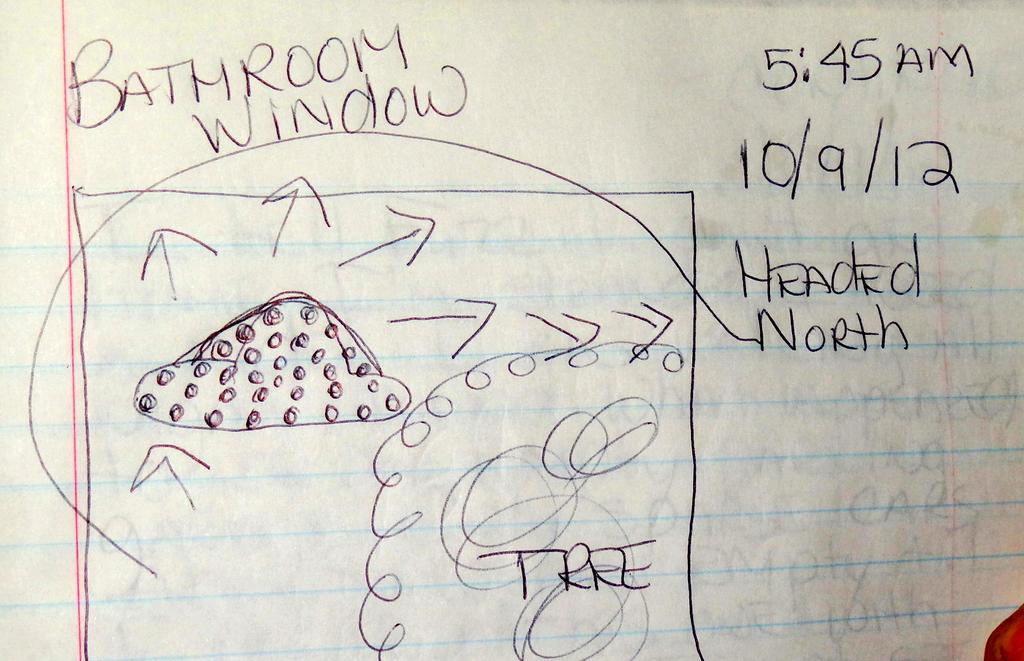 BATHROOM
WINdOW
5:45 AM
10/9/12
HEAdEd
NORTH
TREE